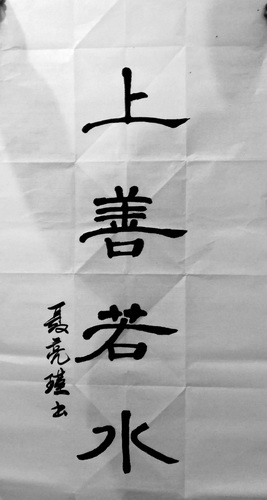 上善若水
聂亮瑾书